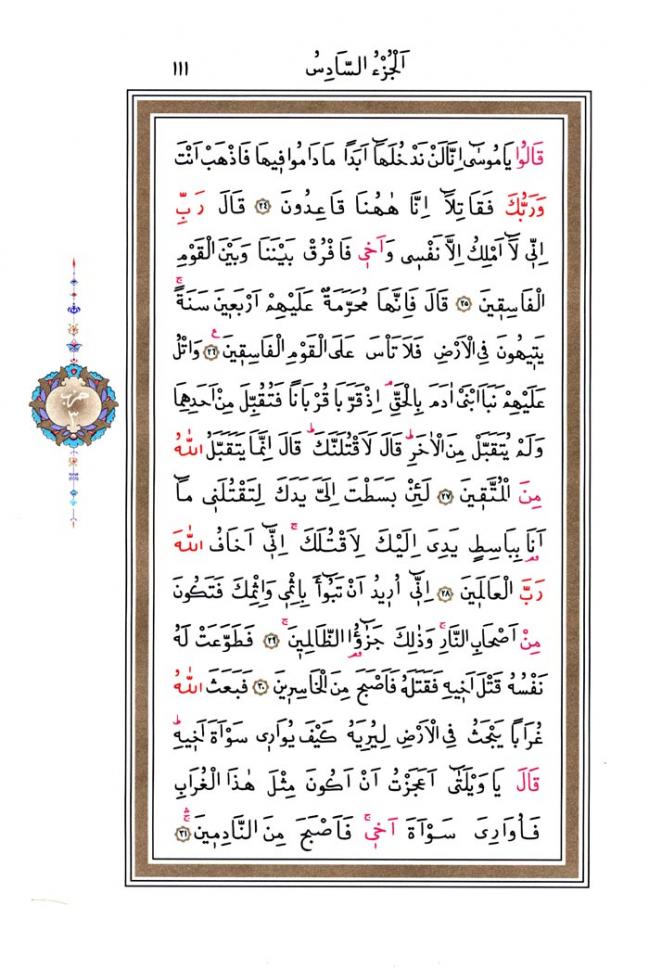 اَلْجُزْءُ السَّادِسُ ١١١
قَالُوا يَامُوسٰٓى اِنَّا لَنْ نَدْخُلَهَٓا اَبَدًا مَا دَامُوا ف۪يهَا فَاذْهَبْ اَنْتَ
وَرَبُّكَ فَقَاتِلَٓا اِنَّا هٰهُنَا قَاعِدُونَ ﴿٢٤﴾ قَالَ رَبِّ
اِنّ۪ي لَٓا اَمْلِكُ اِلَّا نَفْس۪ي وَاَخ۪ي فَافْرُقْ بَيْنَنَا وَبَيْنَ الْقَوْمِ
الْفَاسِق۪ينَ ﴿٢٥﴾ قَالَ فَاِنَّهَا مُحَرَّمَةٌ عَلَيْهِمْ اَرْبَع۪ينَ سَنَةًۚ
يَت۪يهُونَ فِي الْاَرْضِ فَلَا تَأْسَ عَلَى الْقَوْمِ الْفَاسِق۪ينَ۟ ﴿٢٦﴾ وَاتْلُ
عَلَيْهِمْ نَبَاَ ابْنَيْ اٰدَمَ بِالْحَقِّۢ اِذْ قَرَّبَا قُرْبَانًا فَتُقُبِّلَ مِنْ اَحَدِهِمَا
وَلَمْ يُتَقَبَّلْ مِنَ الْاٰخَرِۜ قَالَ لَاَقْتُلَنَّكَۜ قَالَ اِنَّمَا يَتَقَبَّلُ اللّٰهُ
مِنَ الْمُتَّق۪ينَ ﴿٢٧﴾ لَئِنْ بَسَطْتَ اِلَيَّ يَدَكَ لِتَقْتُلَن۪ي مَٓا
اَنَا۬ بِبَاسِطٍ يَدِيَ اِلَيْكَ لِاَقْتُلَكَۚ اِنّ۪ٓي اَخَافُ اللّٰهَ
رَبَّ الْعَالَم۪ينَ ﴿٢٨﴾ اِنّ۪ٓي اُر۪يدُ اَنْ تَبُٓوأَ بِاِثْم۪ي وَاِثْمِكَ فَتَكُونَ
مِنْ اَصْحَابِ النَّارِۚ وَذٰلِكَ جَزٰٓؤُا الظَّالِم۪ينَۚ ﴿٢٩﴾ فَطَوَّعَتْ لَهُ
نَفْسُهُ قَتْلَ اَخ۪يهِ فَقَتَلَهُ فَاَصْبَحَ مِنَ الْخَاسِر۪ينَ ﴿٣٠﴾ فَبَعَثَ اللّٰهُ
غُرَابًا يَبْحَثُ فِي الْاَرْضِ لِيُرِيَهُ كَيْفَ يُوَار۪ي سَوْاَةَ اَخ۪يهِۜ
قَالَ يَا وَيْلَتٰٓى اَعَجَزْتُ اَنْ اَكُونَ مِثْلَ هٰذَا الْغُرَابِ
فَاُوَارِيَ سَوْاَةَ اَخ۪يۚ فَاَصْبَحَ مِنَ النَّادِم۪ينَۚۛ ﴿٣١﴾
حزب
٣